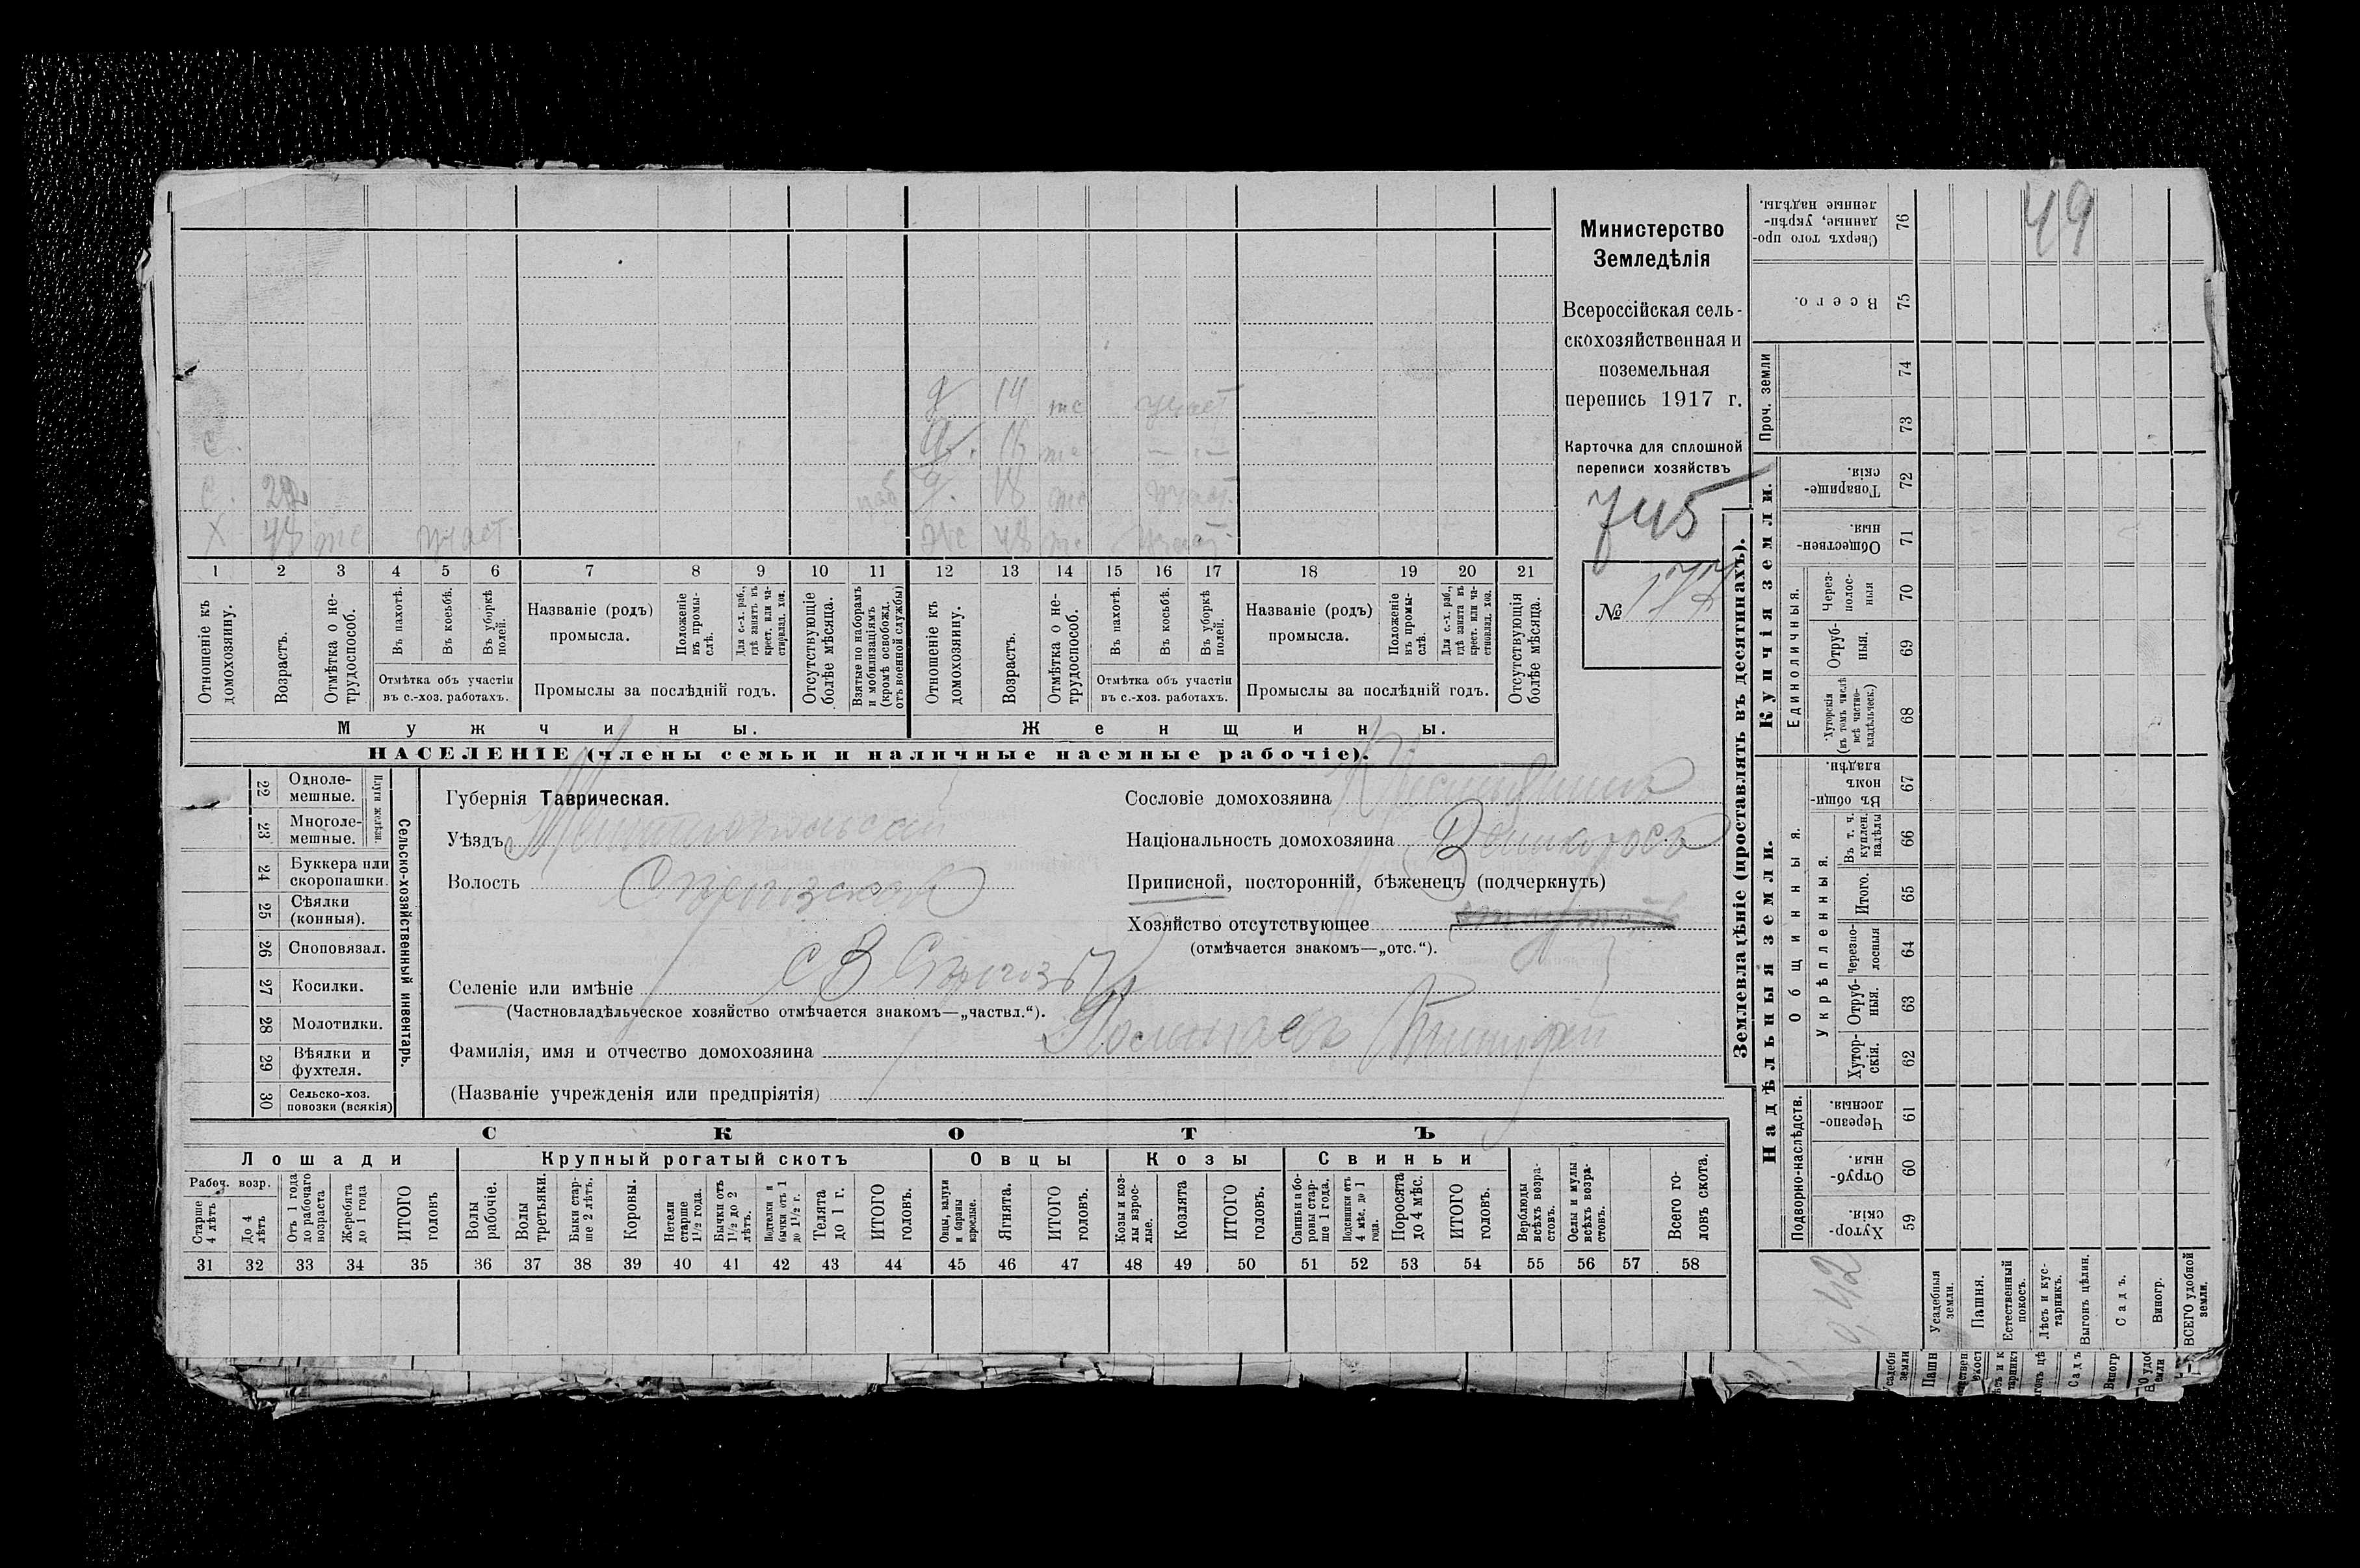 49
Министерство
Земледѣлія
Всероссійская сель-
скохозяйственная и
поземельная
перепись 1917 г.
Карточка для сплошной
переписи хозяйствъ
745
№ 177
д 14 участ
д. 16 — „ —
с.
с. 22 д. 18
х 43 участ. ж 43 участ.
1 2 3 4 5 6 7 8 9 10 11 12 13 14 15 16 17 18 19 20 21
Отношеніе къ домохозяину.
Возрастъ.
Отмѣтка о не-трудоспособ.
Въ пахотѣ.
Въ косьбѣ.
Въ уборкѣ полей.
Отмѣтка объ участіи
въ с.-хоз. работахъ.
Названіе (родъ)
промысла.
Положеніе въ промы-слѣ.
Для с.-х. раб., гдѣ занятъ въ крест. или ча-стновлад. хоз.
Промыслы за послѣдній годъ.
Отсутствующіе болѣе мѣсяца.
Взятые по наборамъ и мобилизаціямъ (кромѣ освобожд. отъ военной службы)
Отношеніе къ домохозяину.
Возрастъ.
Отмѣтка о не-трудоспособ.
Въ пахотѣ.
Въ косьбѣ.
Въ уборкѣ полей.
Отмѣтка объ участіи
въ с.-хоз. работахъ.
Названіе (родъ)
промысла.
Положеніе въ промы-слѣ.
Для с.-х. раб., гдѣ занята въ крест. или ча-стновлад. хоз.
Промыслы за послѣдній годъ.
Отсутствующія болѣе мѣсяца.
Мужчины.
Женщины.
НАСЕЛЕНІЕ (члены семьи и наличные наемные рабочіе).
Сельско-хозяйственный инвентарь.
Плуги желѣзн.
22 Одноле-мешные.
23 Многоле-мешные.
24 Буккера или скоропашки.
25 Сѣялки (конныя).
26 Сноповязал.
27 Косилки.
28 Молотилки.
29 Вѣялки и фухтеля.
30 Сельско-хоз. повозки (всякія)
Губернія Таврическая.
Уѣздъ Мелитопольскій
Волость
Селеніе или имѣніе
(Частновладѣльческое хозяйство отмѣчается знакомъ—„частвл.“).
Фамилія, имя и отчество домохозяина Тимофей
(Названіе учрежденія или предпріятія)
Сословіе домохозяина Крестьянинъ
Національность домохозяина Великороссъ
Приписной, посторонній, бѣженецъ (подчеркнуть)
Хозяйство отсутствующее
(отмѣчается знакомъ—„отс.“).
СКОТЪ
Лошади
Крупный рогатый скотъ
Овцы
Козы
Свиньи
Рабоч. возр.
Старше 4 лѣтъ
До 4 лѣтъ
Отъ 1 года до рабочаго возраста
Жеребята до 1 года
ИТОГО головъ
Волы рабочіе.
Волы третьяки.
Быки стар-ше 2 лѣтъ.
Коровы.
Нетели старше 1½ года.
Бычки отъ 1½ до 2 лѣтъ.
Подтелки и бычки отъ 1 до 1½ г.
Телята до 1 г.
ИТОГО головъ.
Овцы, валухи и бараны взрослые.
Ягнята.
ИТОГО головъ.
Козы и коз-лы взрос-лые.
Козлята
ИТОГО головъ.
Свиньи и бо-ровы стар-ше 1 года.
Подсвинки отъ 4 мѣс. до 1 года.
Поросята до 4 мѣс.
ИТОГО головъ.
Верблюды всѣхъ возра-стовъ.
Ослы и мулы всѣхъ возра-стовъ.
Всего го-ловъ скота.
31 32 33 34 35 36 37 38 39 40 41 42 43 44 45 46 47 48 49 50 51 52 53 54 55 56 57 58
Землевладѣніе (проставлять въ десятинахъ).
Надѣльныя земли.
Купчія земли.
Проч. земли
Подворно-наслѣдств.
Общинныя.
Укрѣпленныя.
Единоличныя.
Сверхъ того про-данные, укрѣп-ленные надѣлы. 76
Всего. 75
74
73
Товарище-скія. 72
Обществен-ныя. 71
Через-полос-ныя 70
Отруб-ныя. 69
Хуторскія (въ томъ числѣ всѣ частно-владѣльческ.) 68
Въ общин-номъ владѣн. 67
Въ т. ч. куплен. надѣлы 66
Итого. 65
Черезпо-лосныя 64
Отруб-ныя. 63
Хутор-скія. 62
Черезпо-лосныя. 61
Отруб-ныя. 60
Хутор-скія. 59
9,42
Усадебныя земли.
Пашня.
Естественный покосъ.
Лѣсъ и кус-тарникъ.
Выгонъ цѣлин.
Садъ.
Виногр.
ВСЕГО удобной земли.